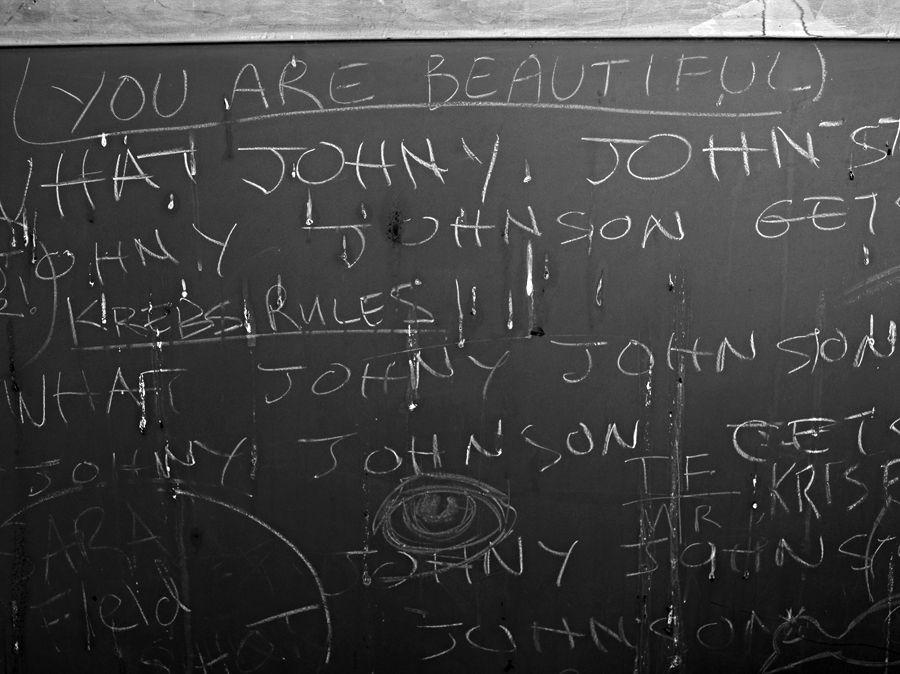 (YOU ARE BEAUTIFUL)
WHAT JOHNY JOHN-
JOHNY JOHNSON GETS
KREBS RULES!!
JOHNY JOHNSON
WHAT JOHNY JOHNSON GETS
JOHNY
MR. JOHNY JOHNSON
ARA
Field
JOHNSON